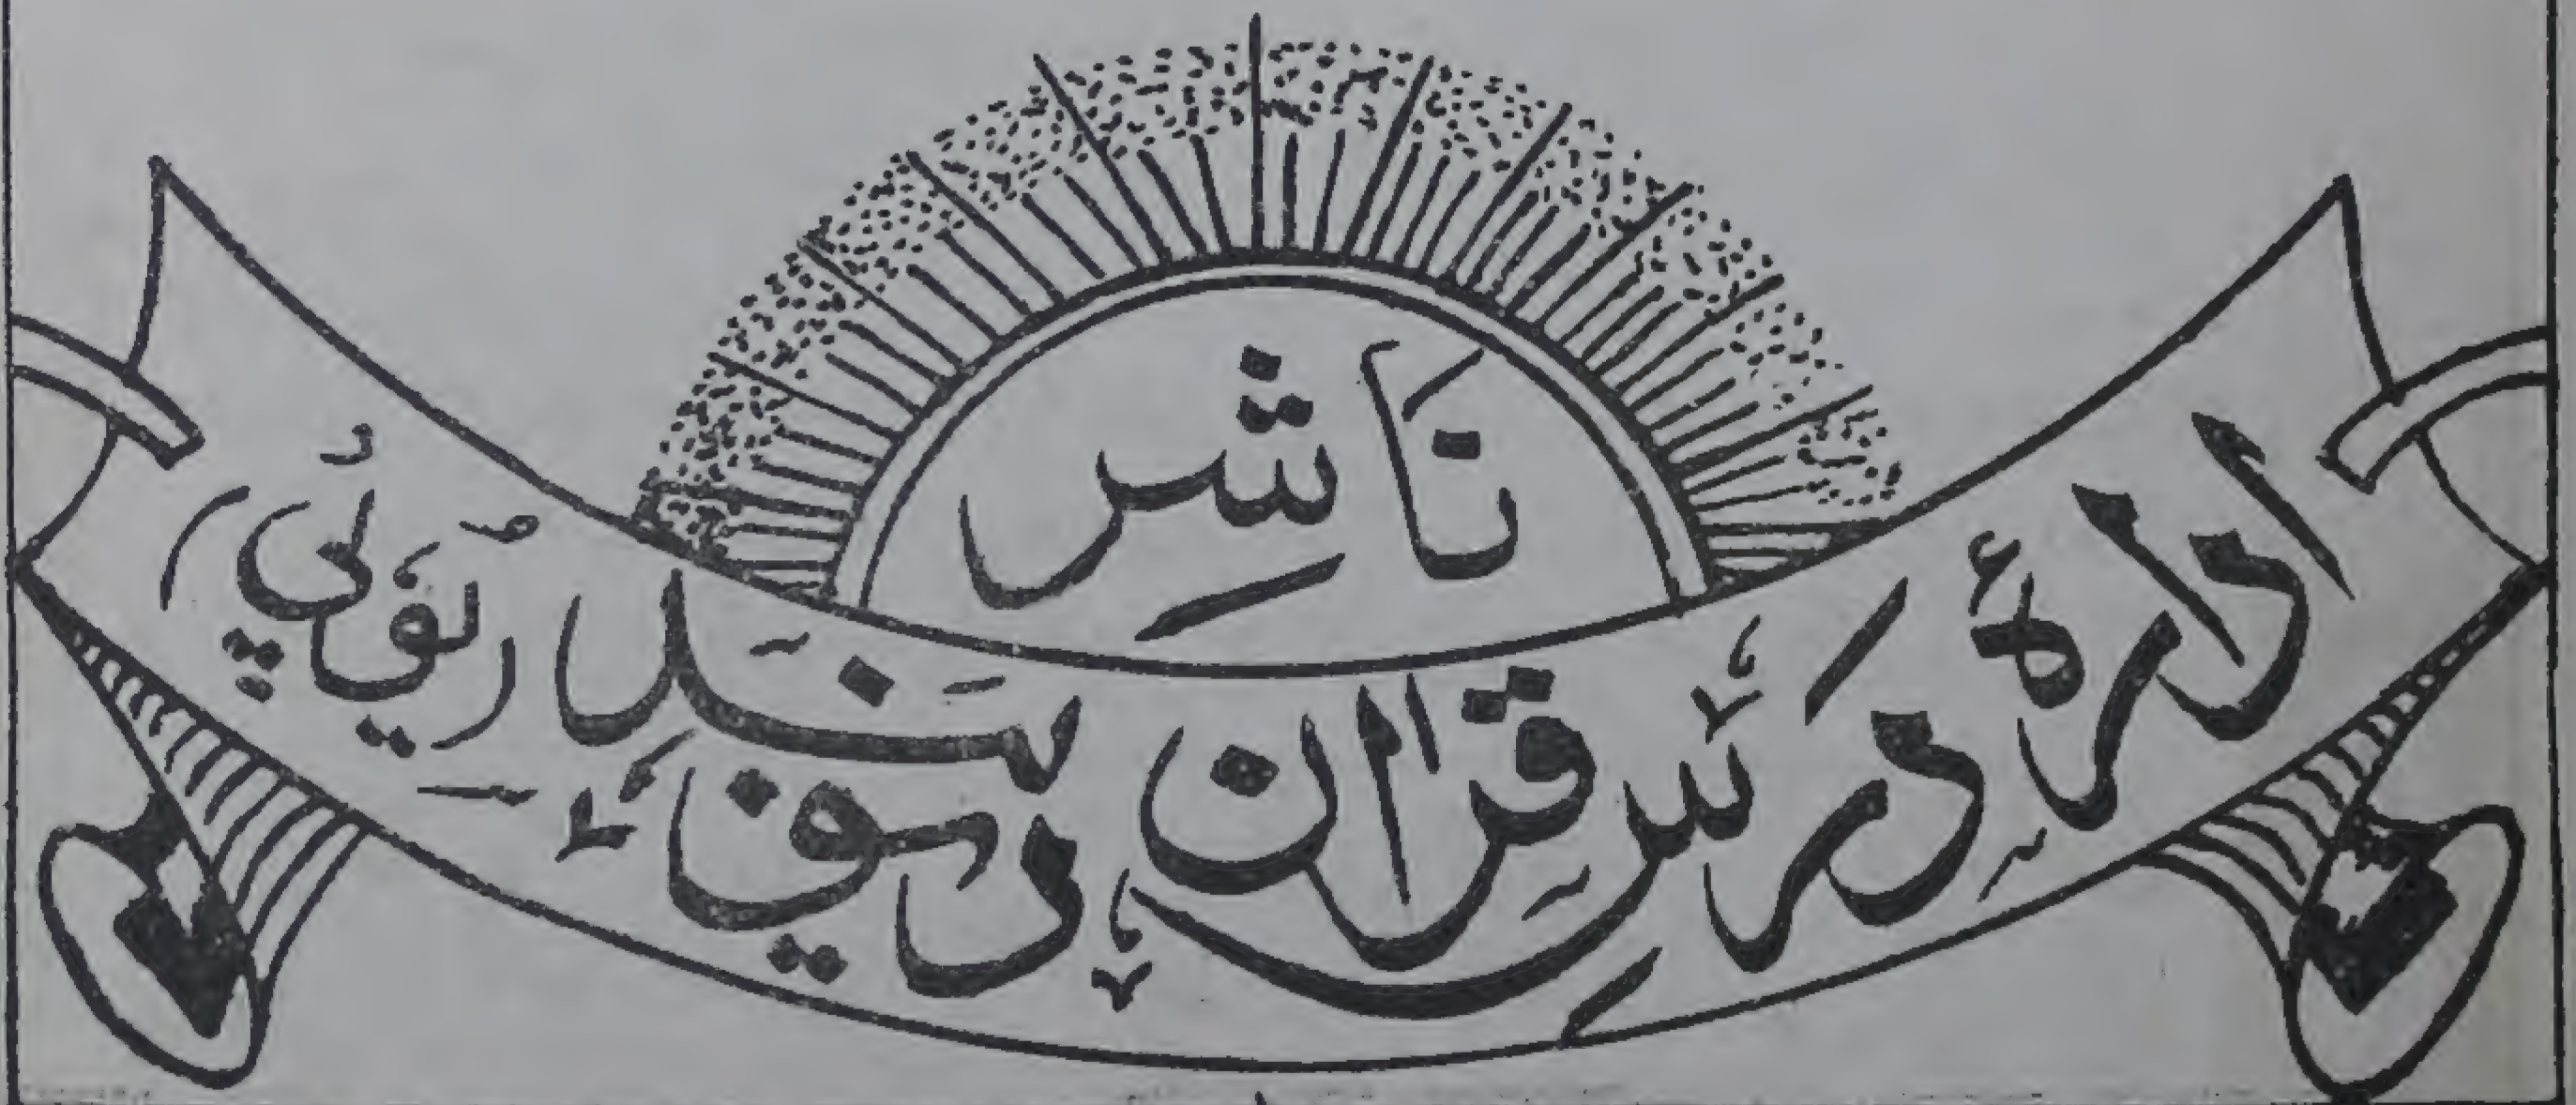 ناشر
ادارۂ درس قرآن دیوبند (یوپی)